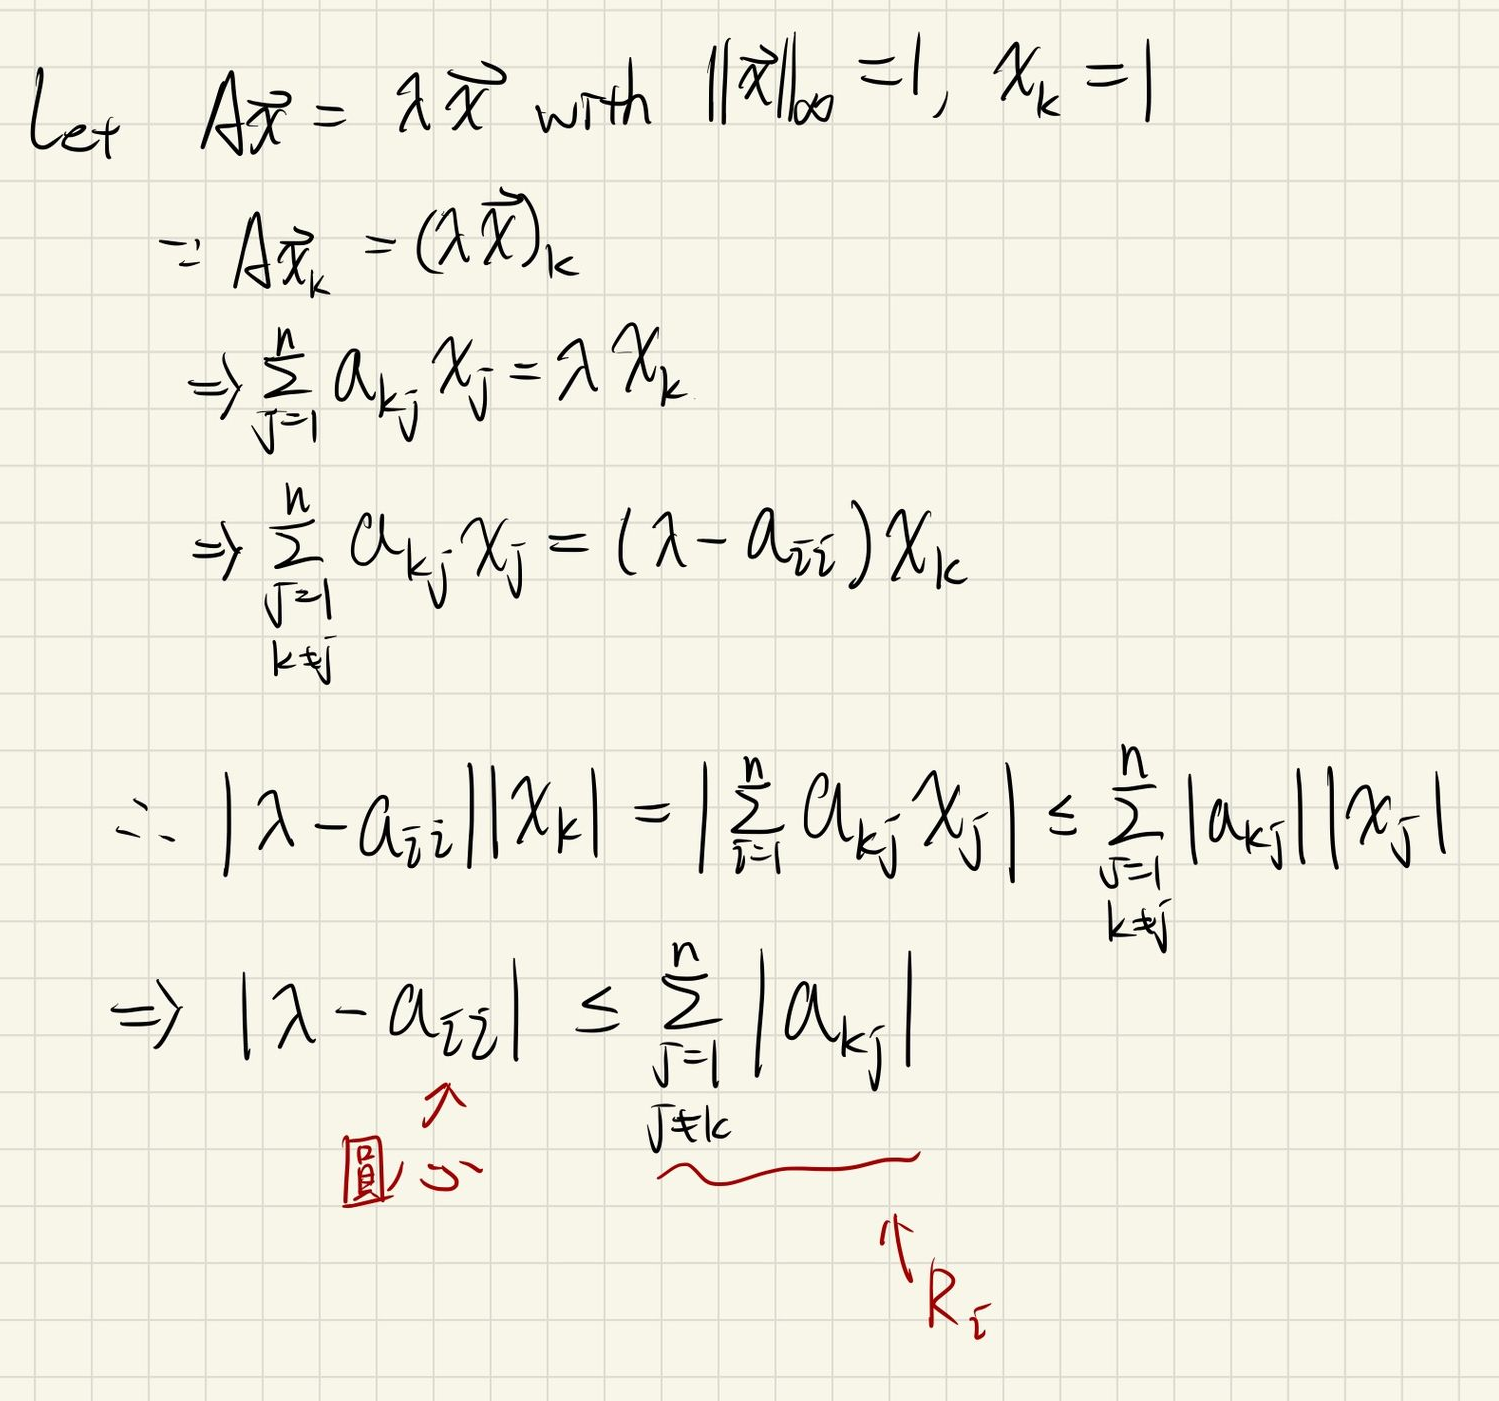 Let A\vec{x} = λ\vec{x} with ||\vec{x}||_∞ = 1, x_k = 1
∵ A\vec{x}_k = (λ\vec{x})_k
⇒ \sum_{j=1}^{n} a_{kj} x_j = λ x_k
⇒ \sum_{j=1, k≠j}^{n} a_{kj} x_j = (λ - a_{ii}) x_k
∴ |λ - a_{ii}||x_k| = |\sum_{i=1}^{n} a_{kj} x_j| ≤ \sum_{j=1, k≠j}^{n} |a_{kj}||x_j|
⇒ |λ - a_{ii}| ≤ \sum_{j=1, j≠k}^{n} |a_{kj}|
↗ 圓心
↑ R_i